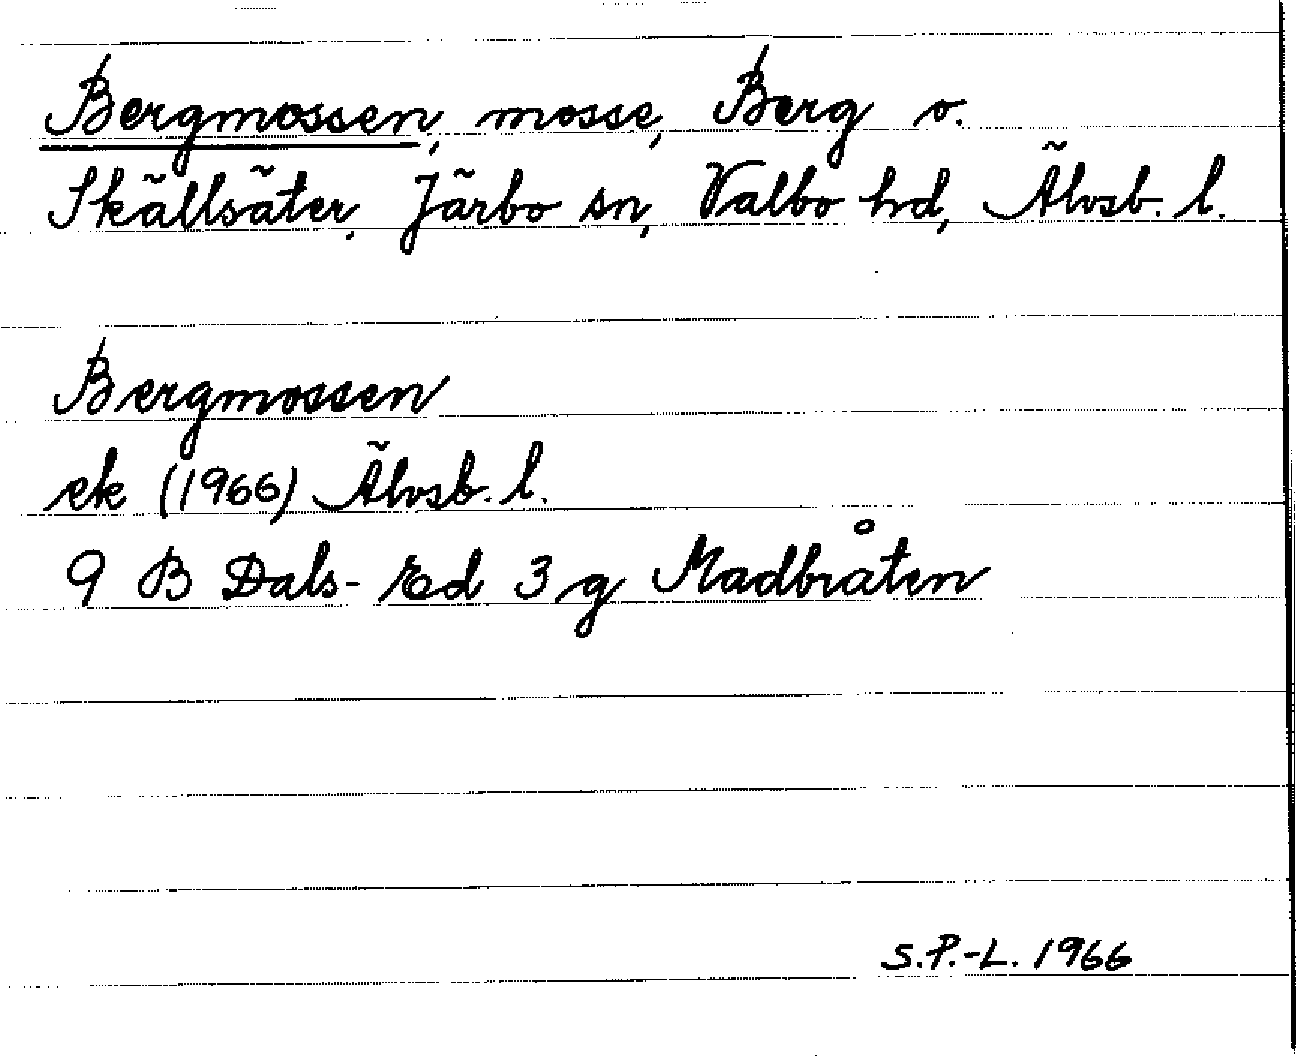 Bergmossen, mosse, Berg o.
Skällsäter, Järbo sn, Valbo hd, Älvsb. l.
Bergmossen
ek (1966) Älvsb. l.
9 B Dals-Ed 3 g Madbråten
S.P.-L. 1966